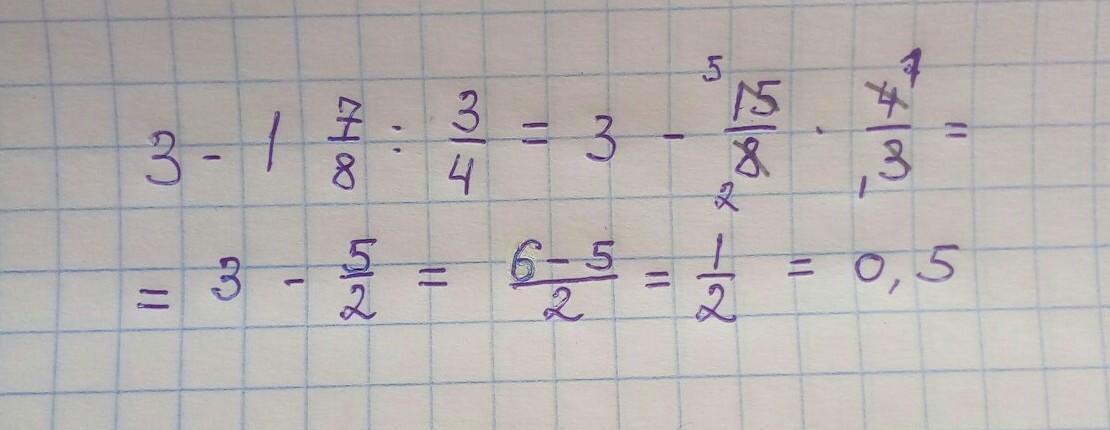 3 - 1 7/8 : 3/4 = 3 - 15/8 · 4/3 =
= 3 - 5/2 = 6-5/2 = 1/2 = 0,5